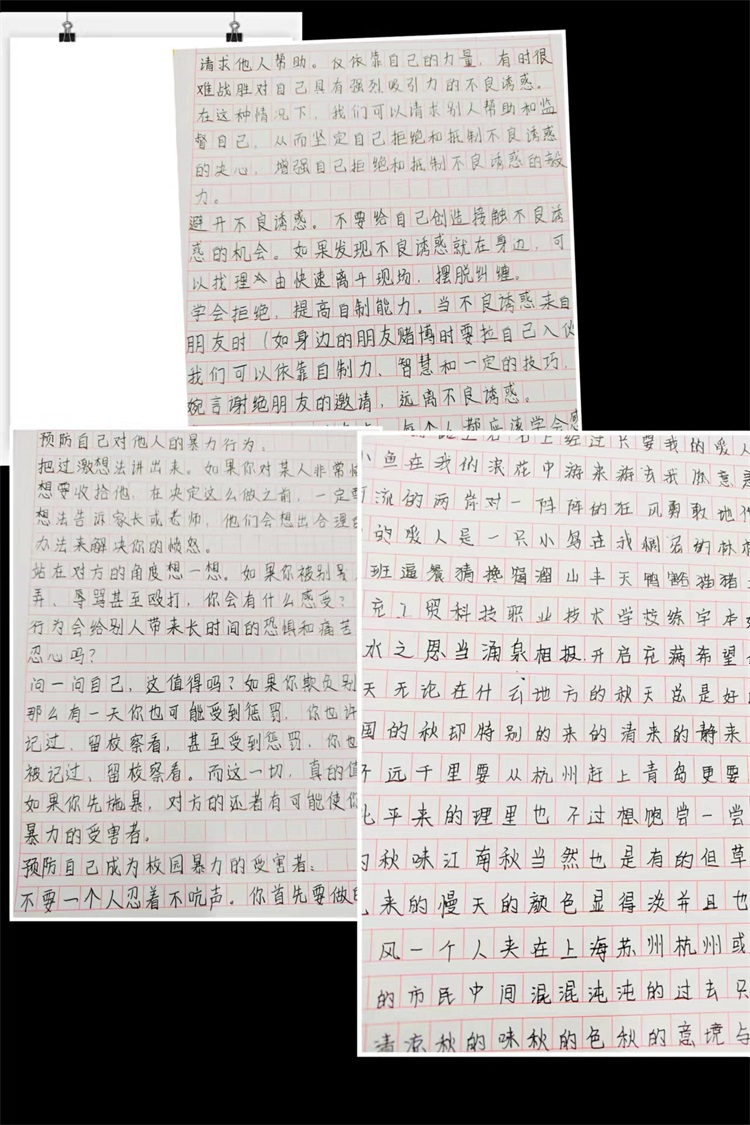 请求他人帮助。仅依靠自己的力量，有时很
难战胜对自己具有强烈吸引力的不良诱惑。
在这种情况下，我们可以请求别人帮助和监
督自己，从而坚定自己拒绝和抵制不良诱惑
的决心，增强自己拒绝和抵制不良诱惑的效
力。
避开不良诱惑。不要给自己创造接触不良诱
惑的机会。如果发现不良诱惑就在身边，可
以找理由快速离开现场，摆脱纠缠。
学会拒绝，提高自制能力。当不良诱惑来自
朋友时（如身边的朋友赌博时要拉自己入伙
我们可以依靠自制力、智慧和一定的技巧，
婉言谢绝朋友的邀请，远离不良诱惑。
每个人都应该学会
预防自己对他人的暴力行为：
把过激想法讲出来。如果你对某人非常
想要收拾他，在决定这么做之前，一定
想法告诉家长或老师，他们会想出合理的
办法来解决你的愤怒。
站在对方的角度想一想。如果你被别
弄、辱骂甚至殴打，你会有什么感受？
行为会给别人带来长时间的恐惧和痛苦
忍心吗？
问一问自己，这值得吗？如果你欺负别
那么有一天你也可能受到惩罚，你也许
记过，留校察看，甚至受到惩罚，你也
被记过、留校察看。而这一切，真的值
如果你先施暴，对方的还者有可能使你
暴力的受害者。
预防自己成为校园暴力的受害者：
不要一个人忍着不吭声。你首先要做的
上经过只要我的爱人
小鱼在我的浪花中游来游去我愿意
流的两岸对一阵阵的狂风勇敢地
的爱人是一只小鸟在我稠密的林
班逼餐猜搀猫溜山丰天鸭豁猫猪
充工贸科技职业技术学校练字本
水之恩当涌泉相报开启充满希望
天无论在什么地方的秋天总是好
国的秋却特别的来的清来的静来
不远千里要从杭州赶上青岛更要
北平来的理里也不过想饱尝一尝
的秋味江南秋当然也是有的但草
来的慢天的颜色显得淡并且也
风一个人夹在上海苏州杭州或
的市民中间混混沌沌的过去只
清凉秋的味秋的色秋的意境与